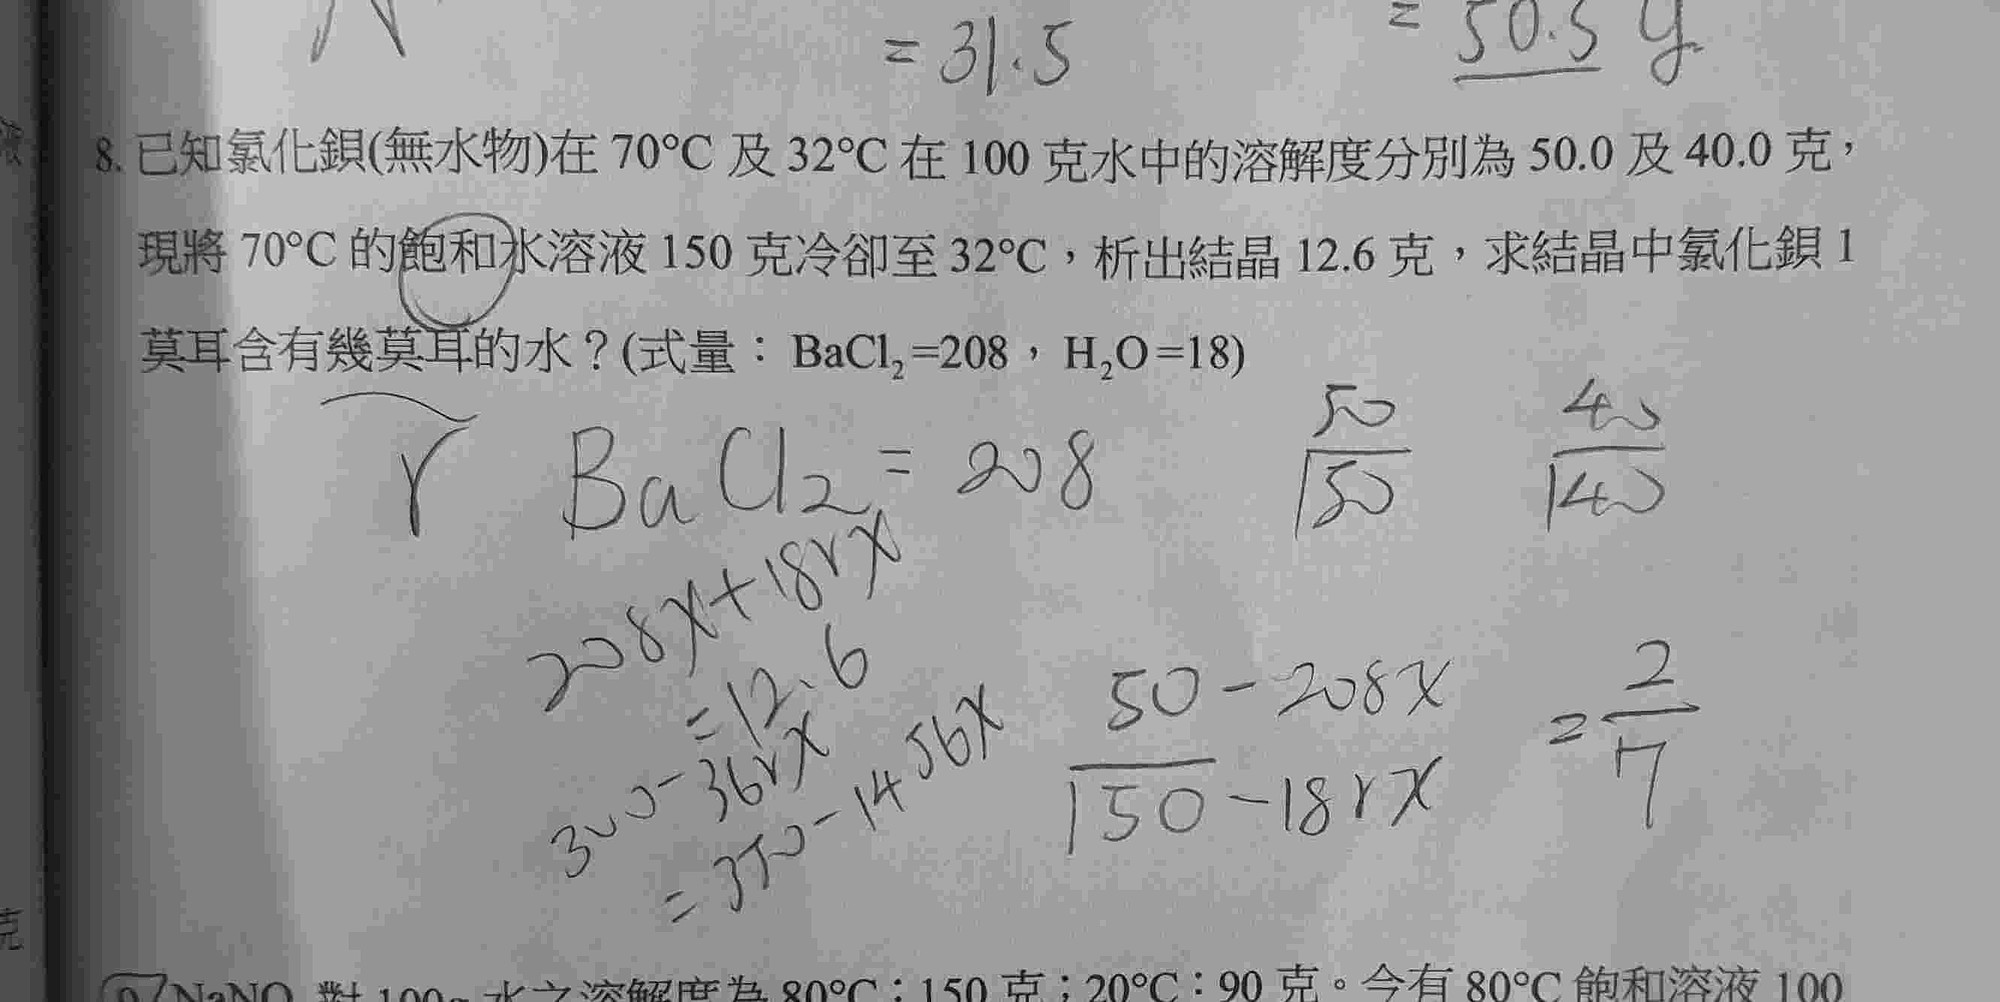 = 31.5
= 50.5 g
8. 已知氯化鋇(無水物)在 70°C 及 32°C 在 100 克水中的溶解度分別為 50.0 及 40.0 克，
現將 70°C 的飽和水溶液 150 克冷卻至 32°C，析出結晶 12.6 克，求結晶中氯化鋇 1
莫耳含有幾莫耳的水？(式量：BaCl₂=208，H₂O=18)
r BaCl₂ = 208
50/150 40/140
208x+18rx
=12.6
50-208x / 150-18rx = 2/7
300-36rx
=350-1456x
NaNO 對 100 水之溶解度為 80°C：150 克；20°C：90 克。今有 80°C 飽和溶液 100
克